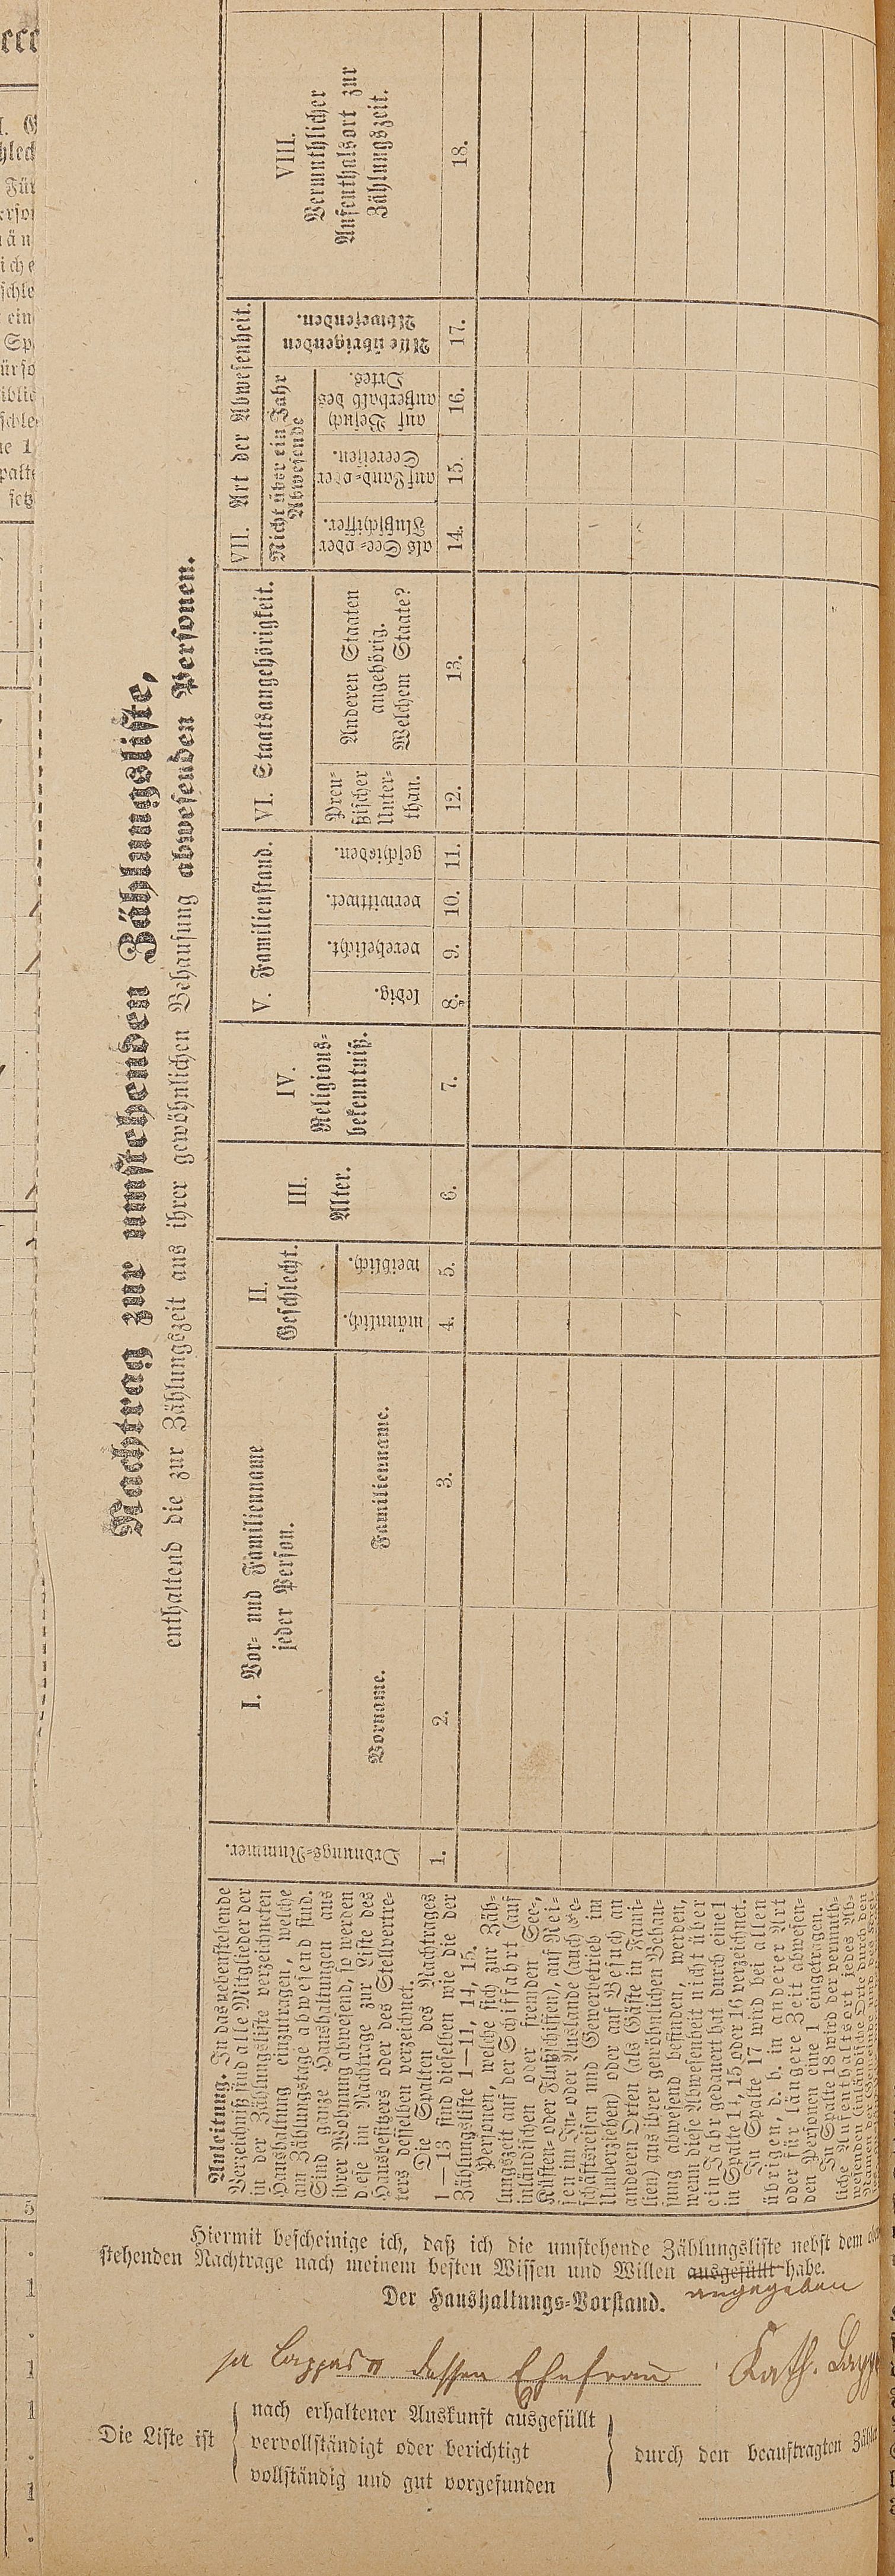 Nachtrag zur umstehenden Zählungsliste,
enthaltend die zur Zählungszeit aus ihrer gewöhnlichen Behausung abwesenden Personen.
Anleitung. In das nebenstehende
Verzeichniß sind alle Mitglieder der
in der Zählungsliste verzeichneten
Haushaltung einzutragen, welche
am Zählungstage abwesend sind.
Sind ganze Haushaltungen aus
ihrer Wohnung abwesend, so werden
diese im Nachtrage zur Liste des
Hausbesitzers oder des Stellvertre-
ters desselben verzeichnet.
Die Spalten des Nachtrages
1—13 sind dieselben wie die der
Zählungsliste 1—11, 14, 15.
Personen, welche sich zur Zäh-
lungszeit auf der Schiffahrt (auf
inländischen oder fremden See-,
Küsten- oder Flußschiffen), auf Rei-
sen im In- oder Auslande (auch Ge-
schäftsreisen und Gewerbetrieb im
Umherziehen) oder auf Besuch an
anderen Orten (als Gäste in Fami-
lien) aus ihrer gewöhnlichen Behau-
sung abwesend befinden, werden,
wenn diese Abwesenheit nicht über
ein Jahr gedauert hat durch eine 1
in Spalte 14, 15 oder 16 verzeichnet.
In Spalte 17 wird bei allen
übrigen, d. h. in anderer Art
oder für längere Zeit abwesen-
den Personen eine 1 eingetragen.
In Spalte 18 wird der vermuth-
liche Aufenthaltsort jedes Ab-
wesenden (inländische Orte durch den
Namen der Gemeinde und des Krei-
Ordnungs-Nummer.
1.
I. Vor- und Familienname
jeder Person.
Vorname.
2.
Familienname.
3.
II.
Geschlecht.
männlich.
4.
weiblich.
5.
III.
Alter.
6.
IV.
Religions-
bekenntniß.
7.
V. Familienstand.
ledig.
8.
verehelicht.
9.
verwittwet.
10.
geschieden.
11.
VI. Staatsangehörigkeit.
Preu-
ßischer
Unter-
than.
12.
Anderen Staaten
angehörig.
Welchem Staate?
13.
VII. Art der Abwesenheit.
Nicht über ein Jahr
Abwesende
als See- oder
Flußschiffer.
14.
auf Land- oder
Seereisen.
15.
auf Besuch
außerhalb des
Ortes.
16.
Alle übrigen
Abwesenden.
17.
VIII.
Vermuthlicher
Aufenthaltsort zur
Zählungszeit.
18.
Hiermit bescheinige ich, daß ich die umstehende Zählungsliste nebst dem
stehenden Nachtrage nach meinem besten Wissen und Willen ausgefüllt habe.
angegeben
Der Haushaltungs-Vorstand.
dessen Ehefrau Kath.
Die Liste ist
nach erhaltener Auskunft ausgefüllt
vervollständigt oder berichtigt
vollständig und gut vorgefunden
durch den beauftragten